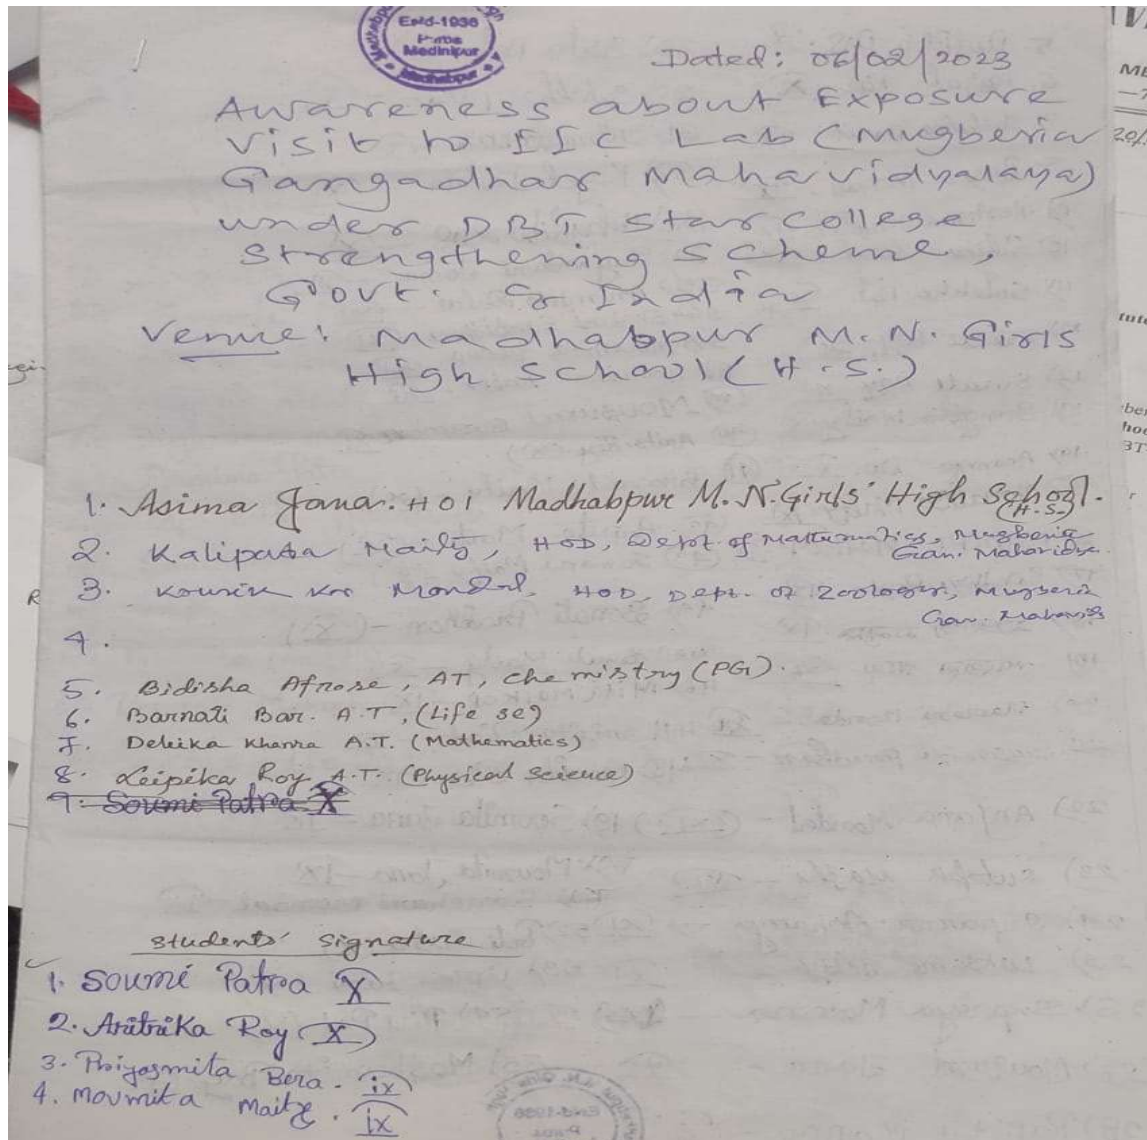 Estd-1936
Purba
Medinipur
Madhabpur
Dated: 06/02/2023
Awareness about Exposure
visit to IIC Lab (Mugberia
Gangadhar Mahavidyalaya)
under DBT Star College
Strengthening Scheme,
Govt. of India
Venue: Madhabpur M.N. Girls
High School (H.S.)
1. Asima Jana. HOI Madhabpur M.N. Girls' High School.
(H.S.)
2. Kalipada Maity, HOD, Dept. of Mathematics, Mugberia
Gan. Mahavidya.
3. Kousik Kr Mondal, HOD, Dept. of Zoology, Mugberia
Gan. Mahavid
4.
5. Bidisha Afrose, AT, Chemistry (PG).
6. Barnali Bar. A.T, (Life sc)
7. Debika Khanra A.T. (Mathematics)
8. Leipika Roy A.T. (Physical Science)
9. Soumi Patra X
Students' signature
1. Soumi Patra X
2. Aritrika Roy X
3. Priyasmita Bera. ix
4. Moumita Maity. ix